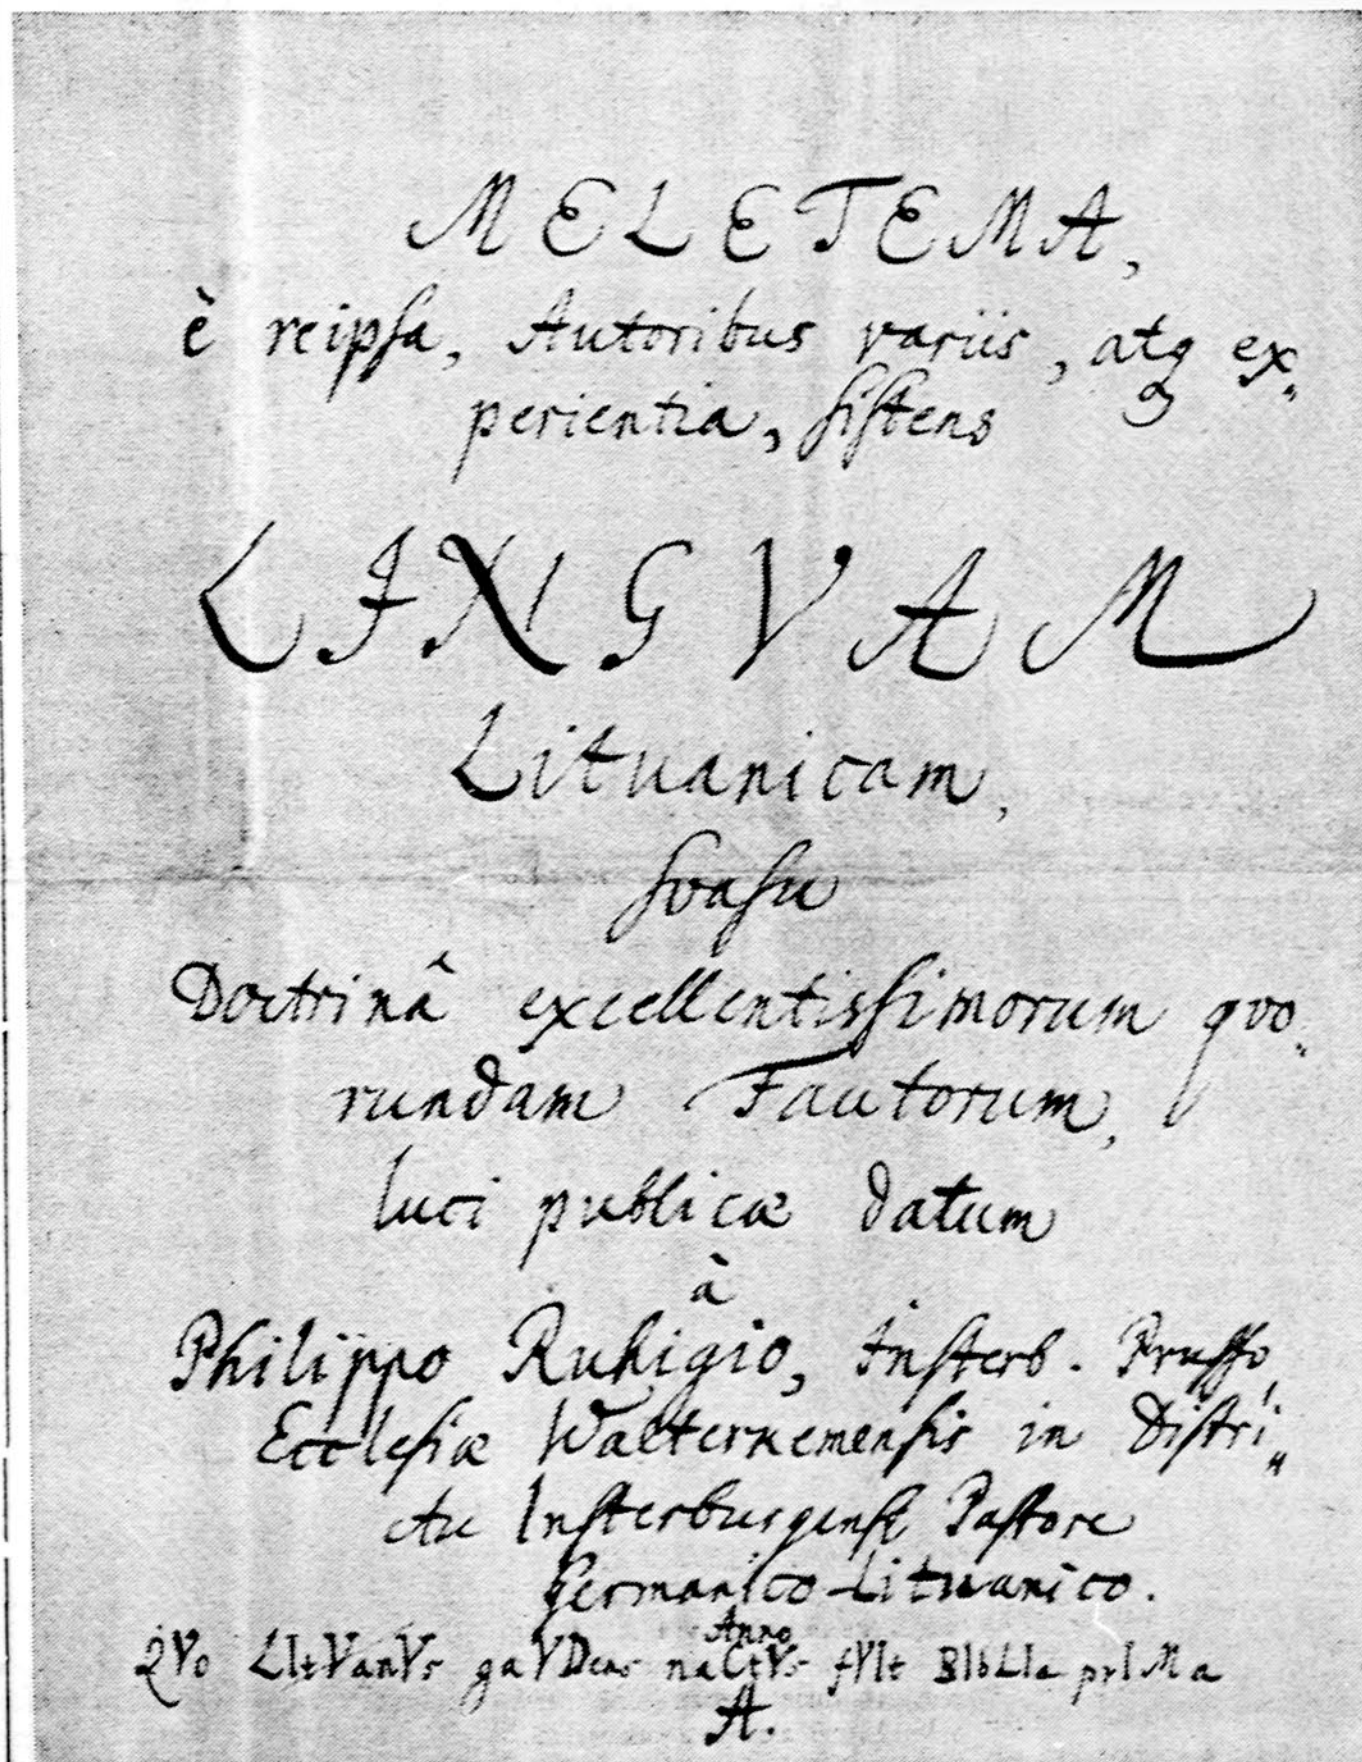 MELETEMA,
è reipſa, Autoribus variis, atq₃ ex„
perientia, ſiſtens
LINGVAM
Lituanicam,
ſvaſu
Doctrinâ excellentisſimorum qvo„
rundam Fautorum,
luci publicæ datum
à
Philippo Ruhigio, Inſterb. Pruſſo,
Eccleſiæ Walterkemenſis in Diſtri„
ctu Inſterburgenſi Paſtore
Germanico-Lituanico.
Anno
QVo LItVanVs gaVDens naCtVs fVIt BIbLIa prIMa
A.